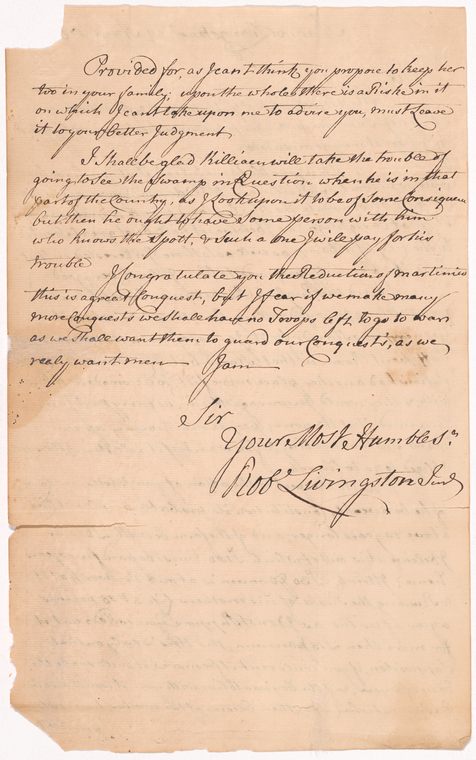 Provided for, as I cant think you propose to keep her
too in your family; upon the whole there is a Riske in it
on which I cant take upon me to advise you, must Leave
it to your better Judgment
I Shall be glad Killiaen will take the trouble of
going to see the Swamp in Question when he is in that
part of the Country, as I look upon it to be of Some Consiquence
but then he ought to have Some person with him
who knows the Spott, & Such a one I will pay for his
trouble
I Congratulate you the Reduction of Martinico
this is a great Conquest, but I fear if we make many
more Conquests we shall have no Troops left to go to war
as we shall want them to guard our Conquests, as we
realy want men I am
Sir
Your Most Humble Sr.
Robt Livingston Junr